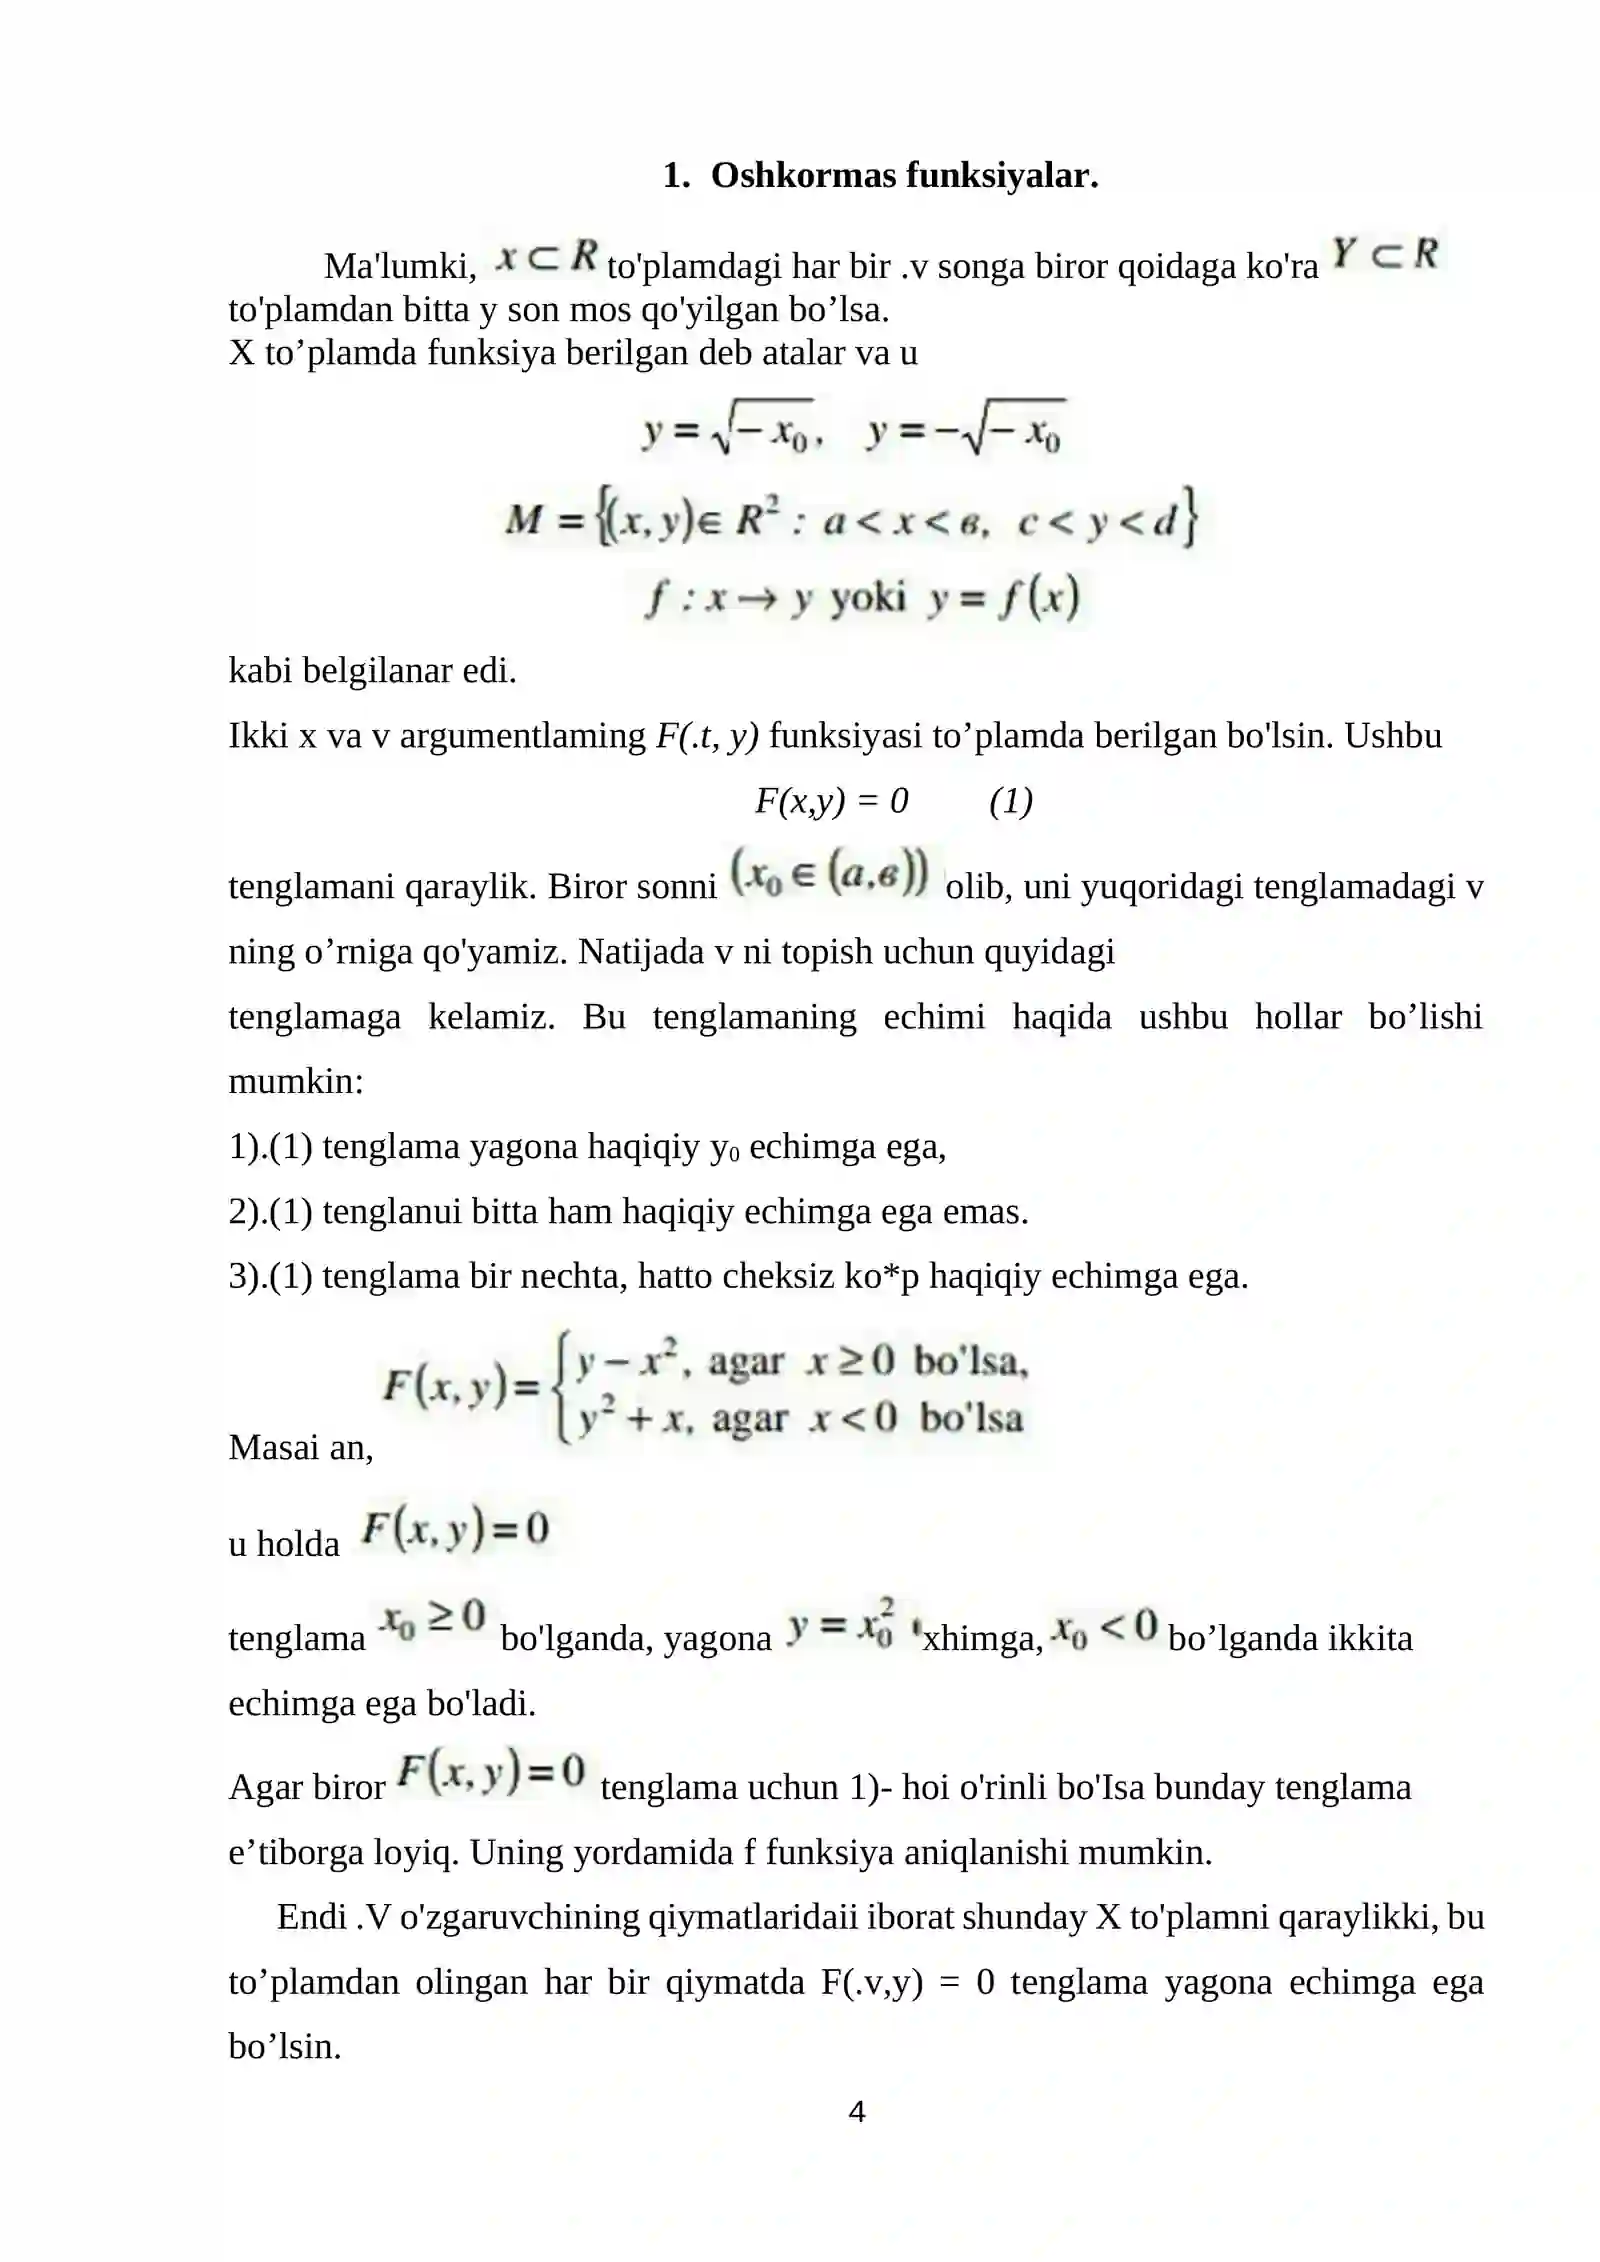 1. Oshkormas funksiyalar.
Ma'lumki, x ⊂ R to'plamdagi har bir .v songa biror qoidaga ko'ra Y ⊂ R
to'plamdan bitta y son mos qo'yilgan bo’lsa.
X to’plamda funksiya berilgan deb atalar va u
y = √(− x₀), y = −√(− x₀)
M = {(x, y) ∈ R² : a < x < в, c < y < d}
f : x → y yoki y = f(x)
kabi belgilanar edi.
Ikki x va v argumentlaming F(.t, y) funksiyasi to’plamda berilgan bo'lsin. Ushbu
F(x,y) = 0 (1)
tenglamani qaraylik. Biror sonni (x₀ ∈ (a,в)) olib, uni yuqoridagi tenglamadagi v
ning o’rniga qo'yamiz. Natijada v ni topish uchun quyidagi
tenglamaga kelamiz. Bu tenglamaning echimi haqida ushbu hollar bo’lishi
mumkin:
1).(1) tenglama yagona haqiqiy y₀ echimga ega,
2).(1) tenglanui bitta ham haqiqiy echimga ega emas.
3).(1) tenglama bir nechta, hatto cheksiz ko*p haqiqiy echimga ega.
Masai an, F(x, y) = { y − x², agar x ≥ 0 bo'lsa,
y² + x, agar x < 0 bo'lsa
u holda F(x, y) = 0
tenglama x₀ ≥ 0 bo'lganda, yagona y = x₀² xhimga, x₀ < 0 bo’lganda ikkita
echimga ega bo'ladi.
Agar biror F(x, y) = 0 tenglama uchun 1)- hoi o'rinli bo'Isa bunday tenglama
e’tiborga loyiq. Uning yordamida f funksiya aniqlanishi mumkin.
Endi .V o'zgaruvchining qiymatlaridaii iborat shunday X to'plamni qaraylikki, bu
to’plamdan olingan har bir qiymatda F(.v,y) = 0 tenglama yagona echimga ega
bo’lsin.
4